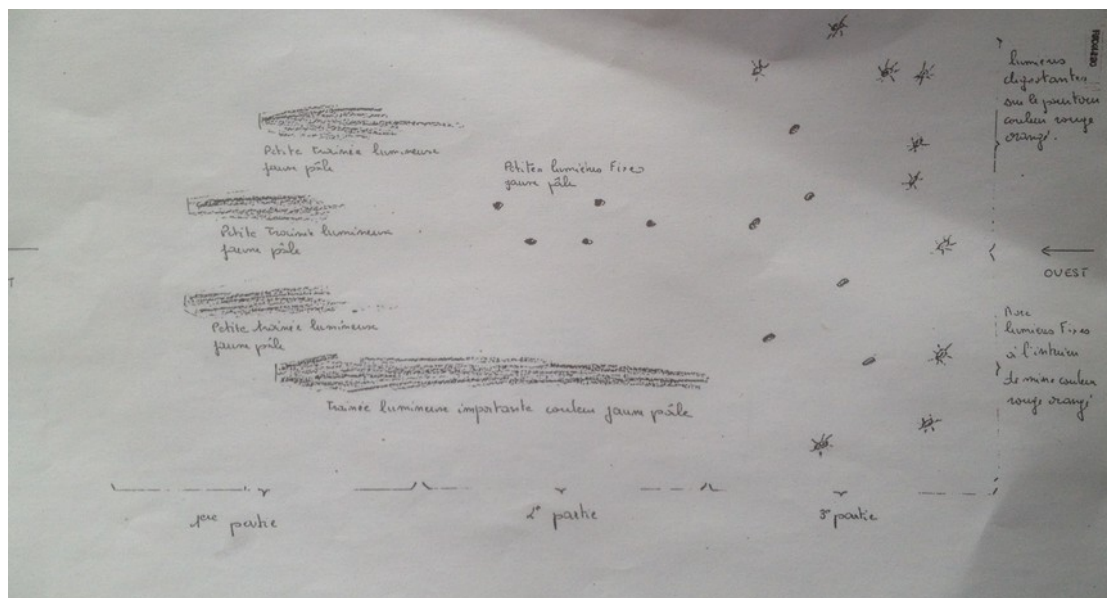 Petite trainée lumineuse
jaune pâle
Petite trainée lumineuse
jaune pâle
Petite trainée lumineuse
jaune pâle
Trainée lumineuse importante couleur jaune pâle
Petites lumières Fixes
jaune pâle
lumières
clignotantes
sur le pourtour
couleur rouge
orangé.
OUEST
Avec
lumières Fixes
à l'intérieur
de même couleur
rouge orangé
1ere partie
2e partie
3e partie